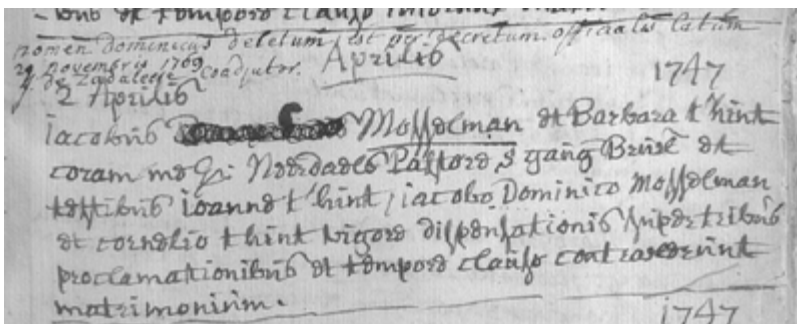 et tempore clauso
nomen dominicus deletum est per decretum officialis latum
29 novembris 1769 Aprilis
coadjutor. 1747
2 Aprilis
iacobus Mosselman et Barbara t'hint
coram me Pastore gang Brusl et
testibus ioanne t'hint, iacobo Dominico Mosselman
et cornelio t hint vigore dispensationis super tribus
proclamationibus et tempore clauso contraxerunt
matrimonium.
1747